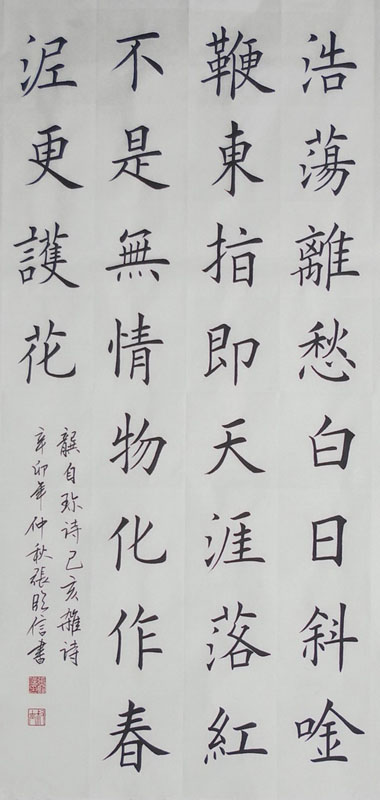 浩蕩離愁白日斜唫
鞭東指即天涯落紅
不是無情物化作春
泥更護花
龔自珎诗己亥雜诗
辛卯年仲秋張信書